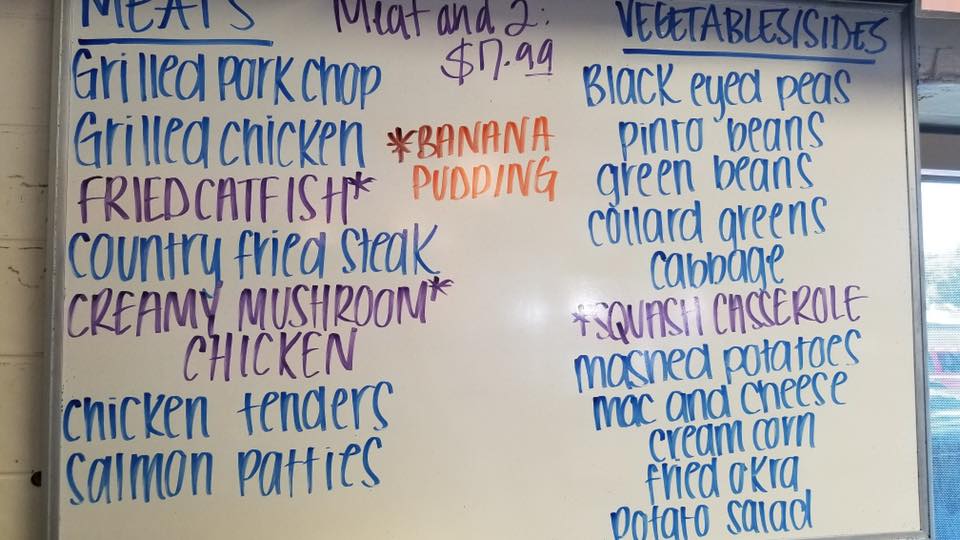 MEATS
Grilled pork chop
Grilled chicken
FRIED CATFISH*
country fried steak
CREAMY MUSHROOM*
CHICKEN
chicken tenders
salmon patties
Meat and 2:
$7.99
*BANANA
PUDDING
VEGETABLES/SIDES
Black eyed peas
pinto beans
green beans
collard greens
cabbage
*SQUASH CASSEROLE
mashed potatoes
mac and cheese
cream corn
fried okra
potato salad